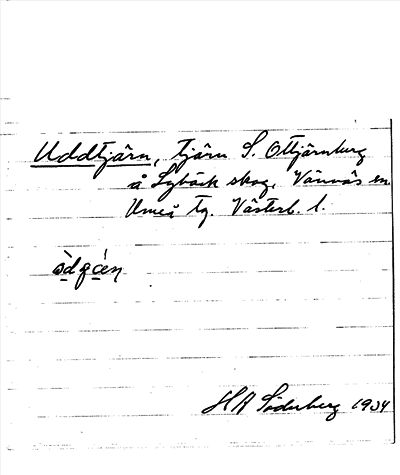 Uddtjärn, tjärn S. Ottjärnberg
å Sybäck skog, Vännäs sn
Umeå tg. Västerb. l.
H A Söderberg 1934